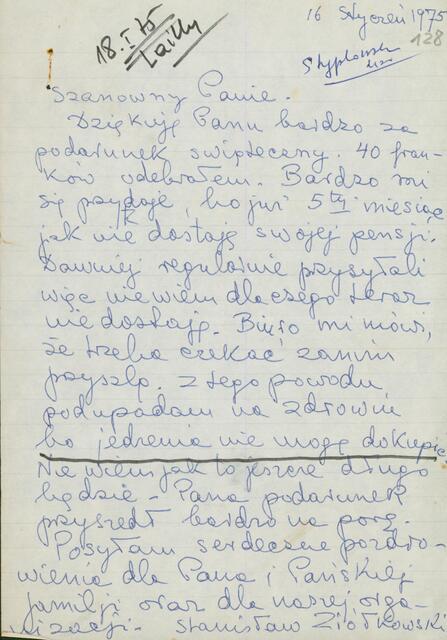 16 styczeń 1975
128
18. I 75
Szanowny Panie.
Dziękuję Panu bardzo za
podarunek świąteczny. 40 fran-
ków odebrałem. Bardzo mi
się przydaje, bo już 5ty miesiąc
jak nie dostaję swojej pensji.
Dawniej regularnie przysyłali
więc nie wiem dlaczego teraz
nie dostaję. Biuro mi mówi,
że trzeba czekać zanim
przyszlą. Z tego powodu
podupadam na zdrowiu
bo jedzenia nie mogę dokupić.
Nie wiem jak to jeszcze długo
będzie – Pana podarunek
przyszedł bardzo na porę.
Posyłam serdeczne pozdro-
wienia dla Pana i Pańskiej
familji oraz dla naszej orga-
nizacji. Stanisław Ziółkowski